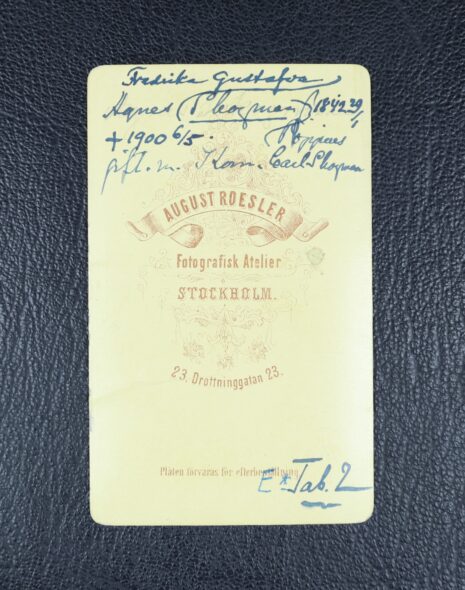 Fredrika Gustafva
Agnes (Skogman) f. 1842 29/1
+ 1900 6/5.
gift. m. Kom. Carl Skogman
AUGUST ROESLER
Fotografisk Atelier
STOCKHOLM.
23. Drottninggatan 23.
Plåten förvaras för efterbeställning
E* Tab. 2